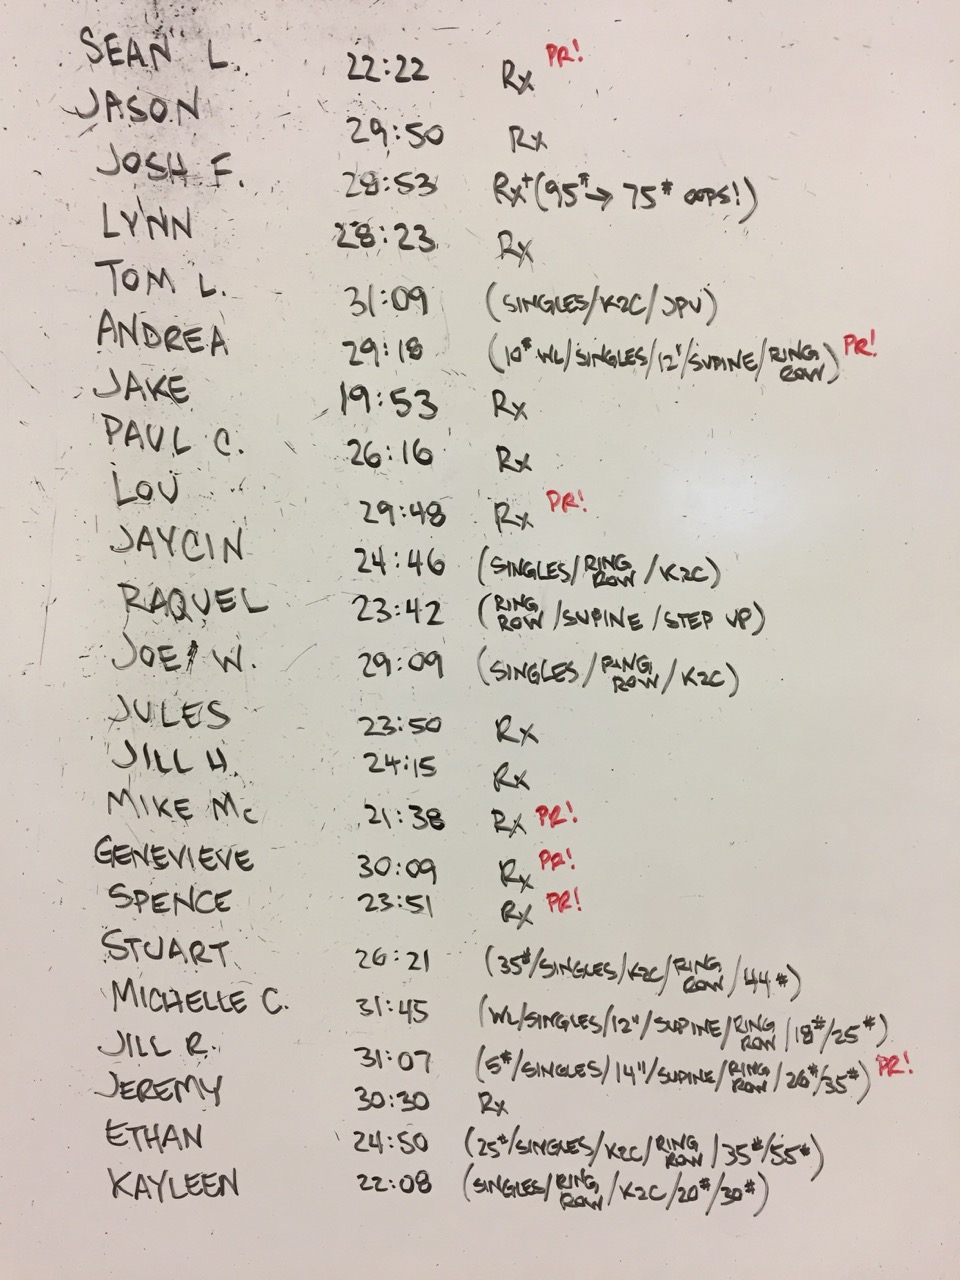 SEAN L. 22:22 Rx PR!
JASON 29:50 Rx
JOSH F. 28:53 Rx+ (95# → 75# OOPS!)
LYNN 28:23 Rx
TOM L. 31:09 (SINGLES/K2C/JPU)
ANDREA 29:18 (10# WL/SINGLES/12"/SUPINE/RING ROW) PR!
JAKE 19:53 Rx
PAUL C. 26:16 Rx
LOU 29:48 Rx PR!
JAYCIN 24:46 (SINGLES/RING ROW/K2C)
RAQUEL 23:42 (RING ROW/SUPINE/STEP UP)
JOE W. 29:09 (SINGLES/RING ROW/K2C)
JULES 23:50 Rx
JILL H. 24:15 Rx
MIKE Mc 21:38 Rx PR!
GENEVIEVE 30:09 Rx PR!
SPENCE 23:51 Rx PR!
STUART 26:21 (35#/SINGLES/K2C/RING ROW/44#)
MICHELLE C. 31:45 (WL/SINGLES/12"/SUPINE/RING ROW/18#/25#)
JILL R. 31:07 (5#/SINGLES/14"/SUPINE/RING ROW/26#/35#) PR!
JEREMY 30:30 Rx
ETHAN 24:50 (25#/SINGLES/K2C/RING ROW/35#/55#)
KAYLEEN 22:08 (SINGLES/RING ROW/K2C/20#/30#)